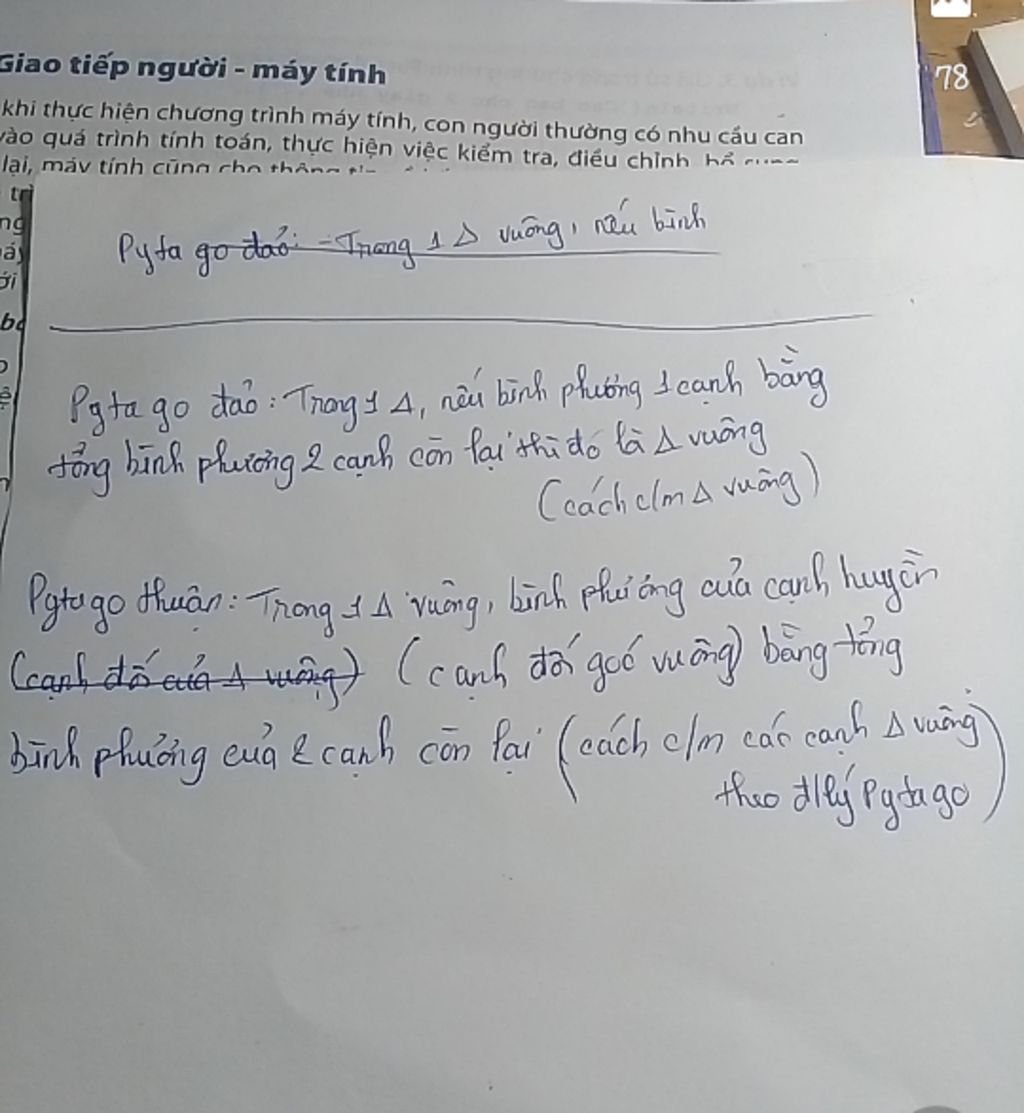 Giao tiếp người - máy tính
78
khi thực hiện chương trình máy tính, con người thường có nhu cầu can
vào quá trình tính toán, thực hiện việc kiểm tra, điều chỉnh bổ sung
lại, máy tính cũng cho thông tin
Pyta go đảo: - Trong 1 Δ vuông, nếu bình
Pytago đảo: Trong 1 Δ, nếu bình phương 1 cạnh bằng
tổng bình phương 2 cạnh còn lại thì đó là Δ vuông
(cách c/m Δ vuông)
Pytago thuận: Trong 1 Δ vuông, bình phương của cạnh huyền
(cạnh đối của Δ vuông) (cạnh đối góc vuông) bằng tổng
bình phương của 2 cạnh còn lại (cách c/m các cạnh Δ vuông
theo đ/lý Pytago)